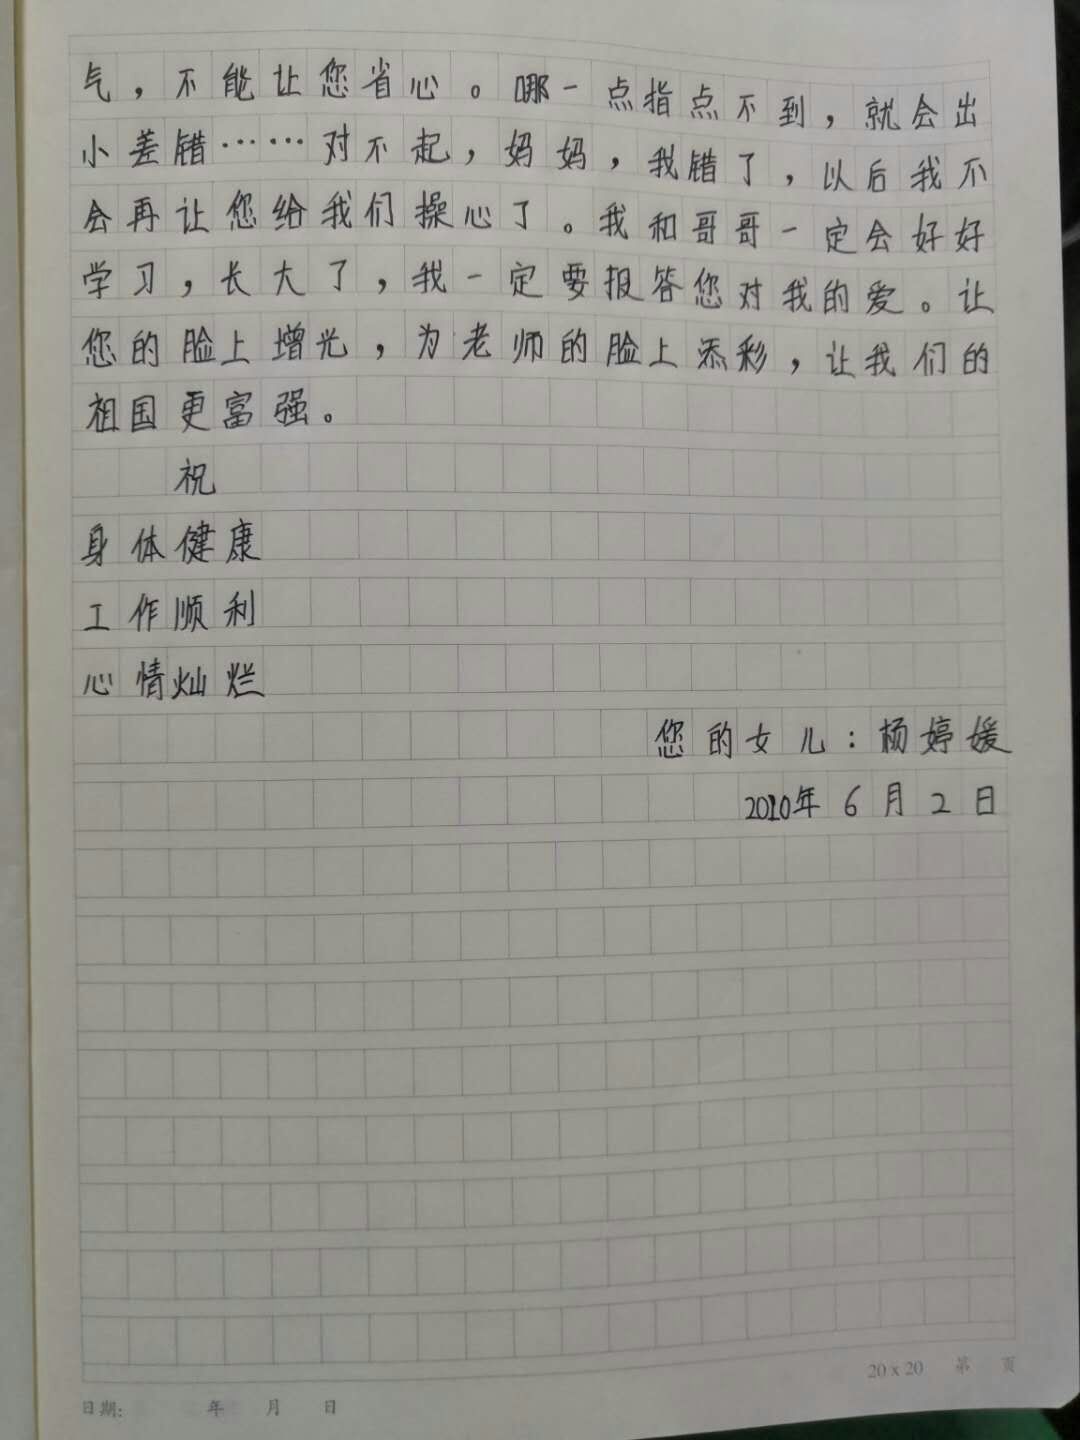 气，不能让您省心。哪一点指点不到，就会出
小差错……对不起，妈妈，我错了，以后我不
会再让您给我们操心了。我和哥哥一定会好好
学习，长大了，我一定要报答您对我的爱。让
您的脸上增光，为老师的脸上添彩，让我们的
祖国更富强。
祝
身体健康
工作顺利
心情灿烂
您的女儿：杨婷媛
2010年6月2日
20x20 第 页
日期: 年 月 日